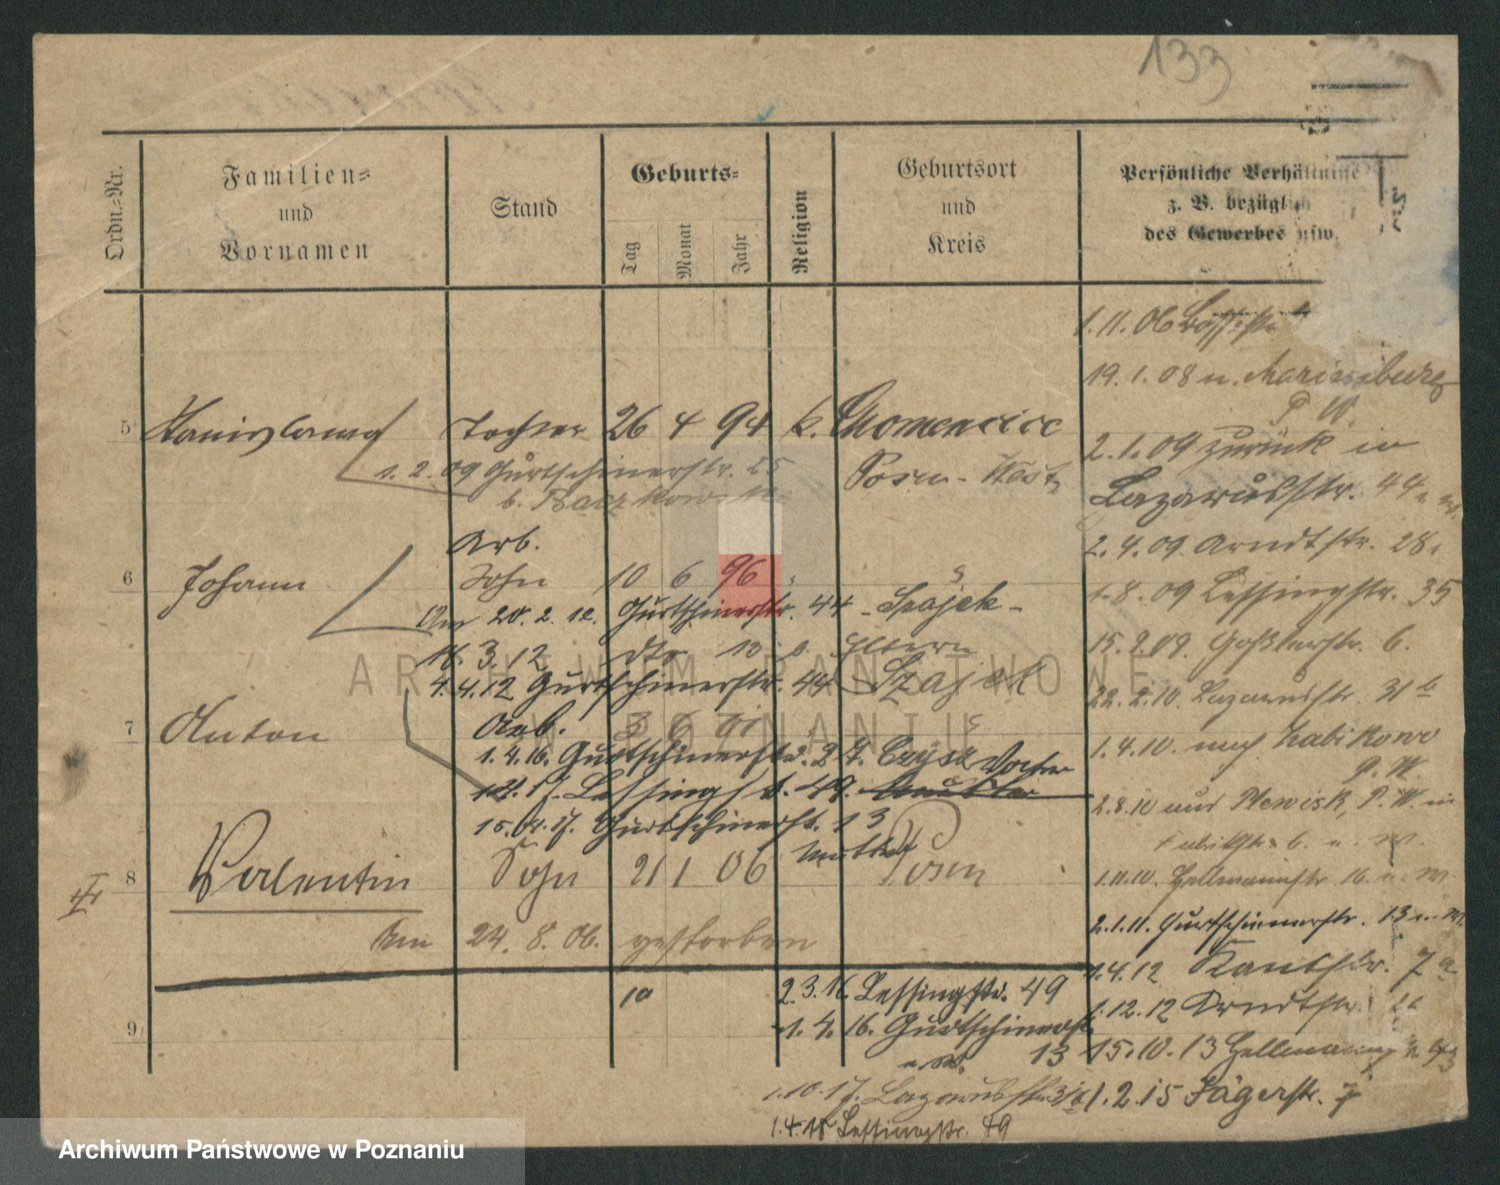 133
Ordn.-Nr.
Familien-
und
Vornamen
Stand
Geburts-
Tag
Monat
Jahr
Religion
Geburtsort
und
Kreis
Persönliche Verhältnisse
z. B. bezüglich
des Gewerbes usw.
1.11.06
19.1.08 n. Marienburg
P W.
5 Stanislawa Tochter 26 4 94 k.
Posen-West
1.2.09 Gurtschinerstr. 25
b.
2.1.09 zurück in
Lazarusstr. 44
Arb.
2.4.09 Arndtstr. 28
6 Johann Sohn 10 6 96
1.8.09 Lessingstr. 35
Am 20.2.12. Gurtschinerstr. 44 - Szajek -
18.3.12 dto 13 b. Eltern
15.9.09. Goßlerstr. 6.
4.4.12 Gurtschinerstr. 44 Szajek
22.2.10. Lazarusstr. 31
7 Anton Arb. 3 6 01
1.4.10. nach Zabikowo
P. W.
1.4.16. Gurtschinerstr. 24. Czysz Vater
1.2.17. Lessingstr. 49. Mutter
2.8.10 aus Plewisk, P. W. in
15.04.17. Gurtschinerstr. 13
Mutter
8 Valentin Sohn 21 1 06 Posen
1.11.10. Hellmannstr. 16. u. W.
2.1.11. Gurtschinerstr. 13 u. W.
Am 24.8.06. gestorben
1.4.12 Kantstr. 7a
10
2.3.16. Lessingstr. 49
1.12.12 Arndtstr.
9
1.4.16. Gurtschinerstr.
u. W. 13
15.10.13 Hellmann
1.10.17. Lazarusstr.
1.2.15 Jägerstr. 7
1.4.18 Lessingstr. 49
ARCHIWUM PAŃSTWOWE
W POZNANIU
Archiwum Państwowe w Poznaniu